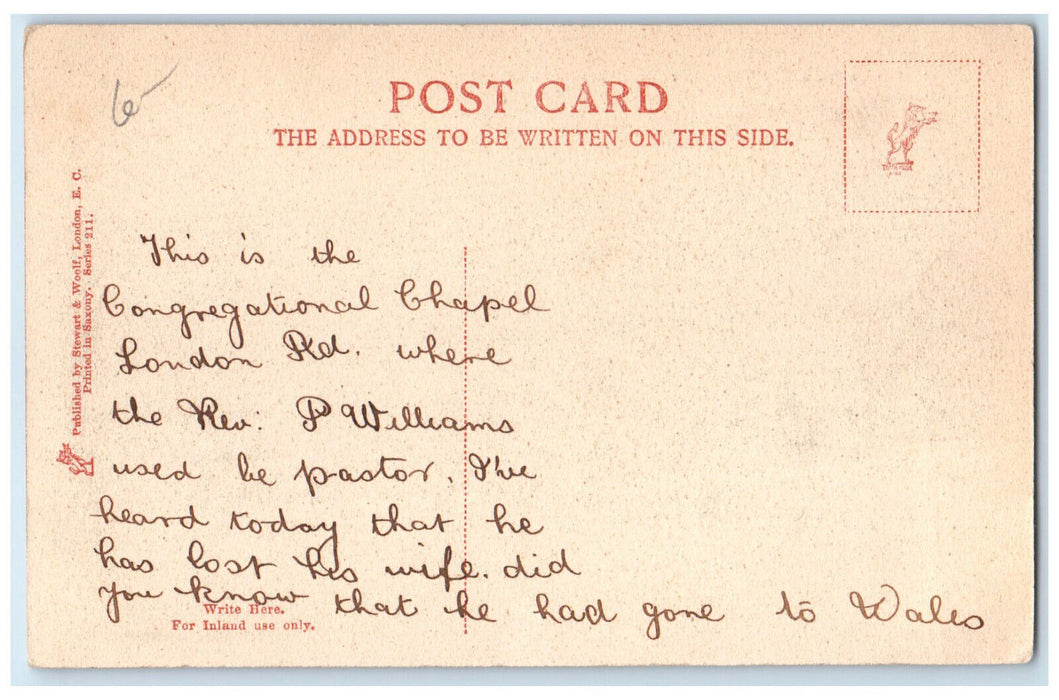 6
POST CARD
THE ADDRESS TO BE WRITTEN ON THIS SIDE.
Published by Stewart & Woolf, London, E. C.
Printed in Saxony. Series 211.
This is the
Congregational Chapel
London Rd. where
the Rev: P Williams
used be pastor. I've
heard today that he
has lost his wife. did
you know that he had gone to Wales
Write Here.
For Inland use only.